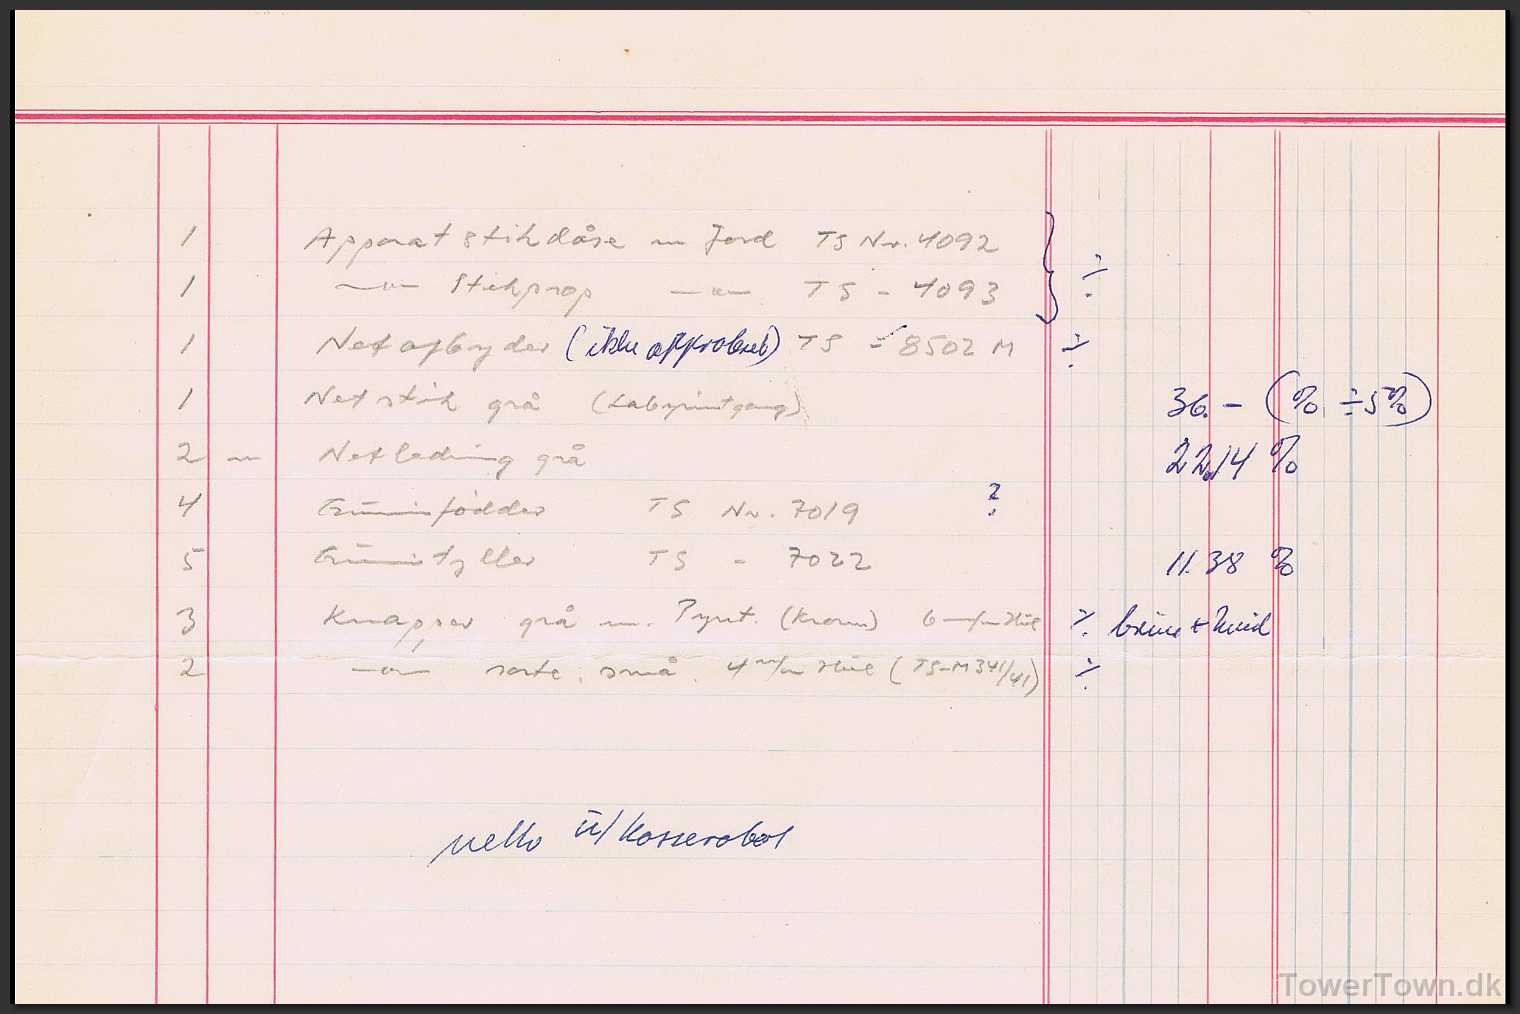 1 Apparatstikdåse m Jord TS Nr. 4092
1 —"— Stikprop —"— TS - 4093 ÷
1 Netafbryder (ikke approberet) TS - 8502 M ÷
1 Netstik grå (Labyrintgang) 36.- (% ÷ 5%)
2 m Netledning grå 22,14 %
4 Gummifødder TS Nr. 7019 ?
5 Gummityller TS - 7022 11.38 %
3 Knapper grå m. Pynt. (Krom) 6 m/m Hul ÷ brune + hvid
2 —"— sorte, små. 4 m/m Hul (TS-M341/41) ÷
netto ÷/ Kasserabat
TowerTown.dk